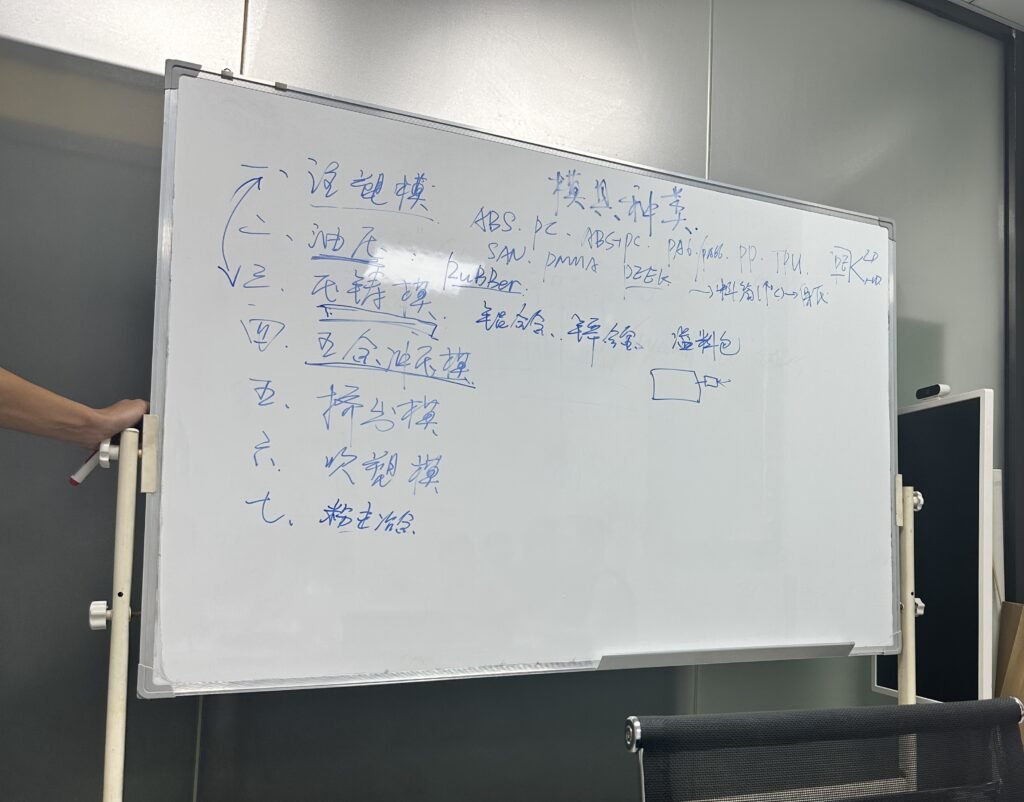 模具种类
一、注塑模
ABS. PC. ABS+PC. PA6/PA66 PP. TPU. PE LD HD
SAN. PMMA PEEK →料筒(↑℃)→
二、油压: RuBBer.
三、压铸模 铝合金、锌合金 溢料包
四、五金冲压模
五、挤出模
六、吹塑模
七、粉末冶金